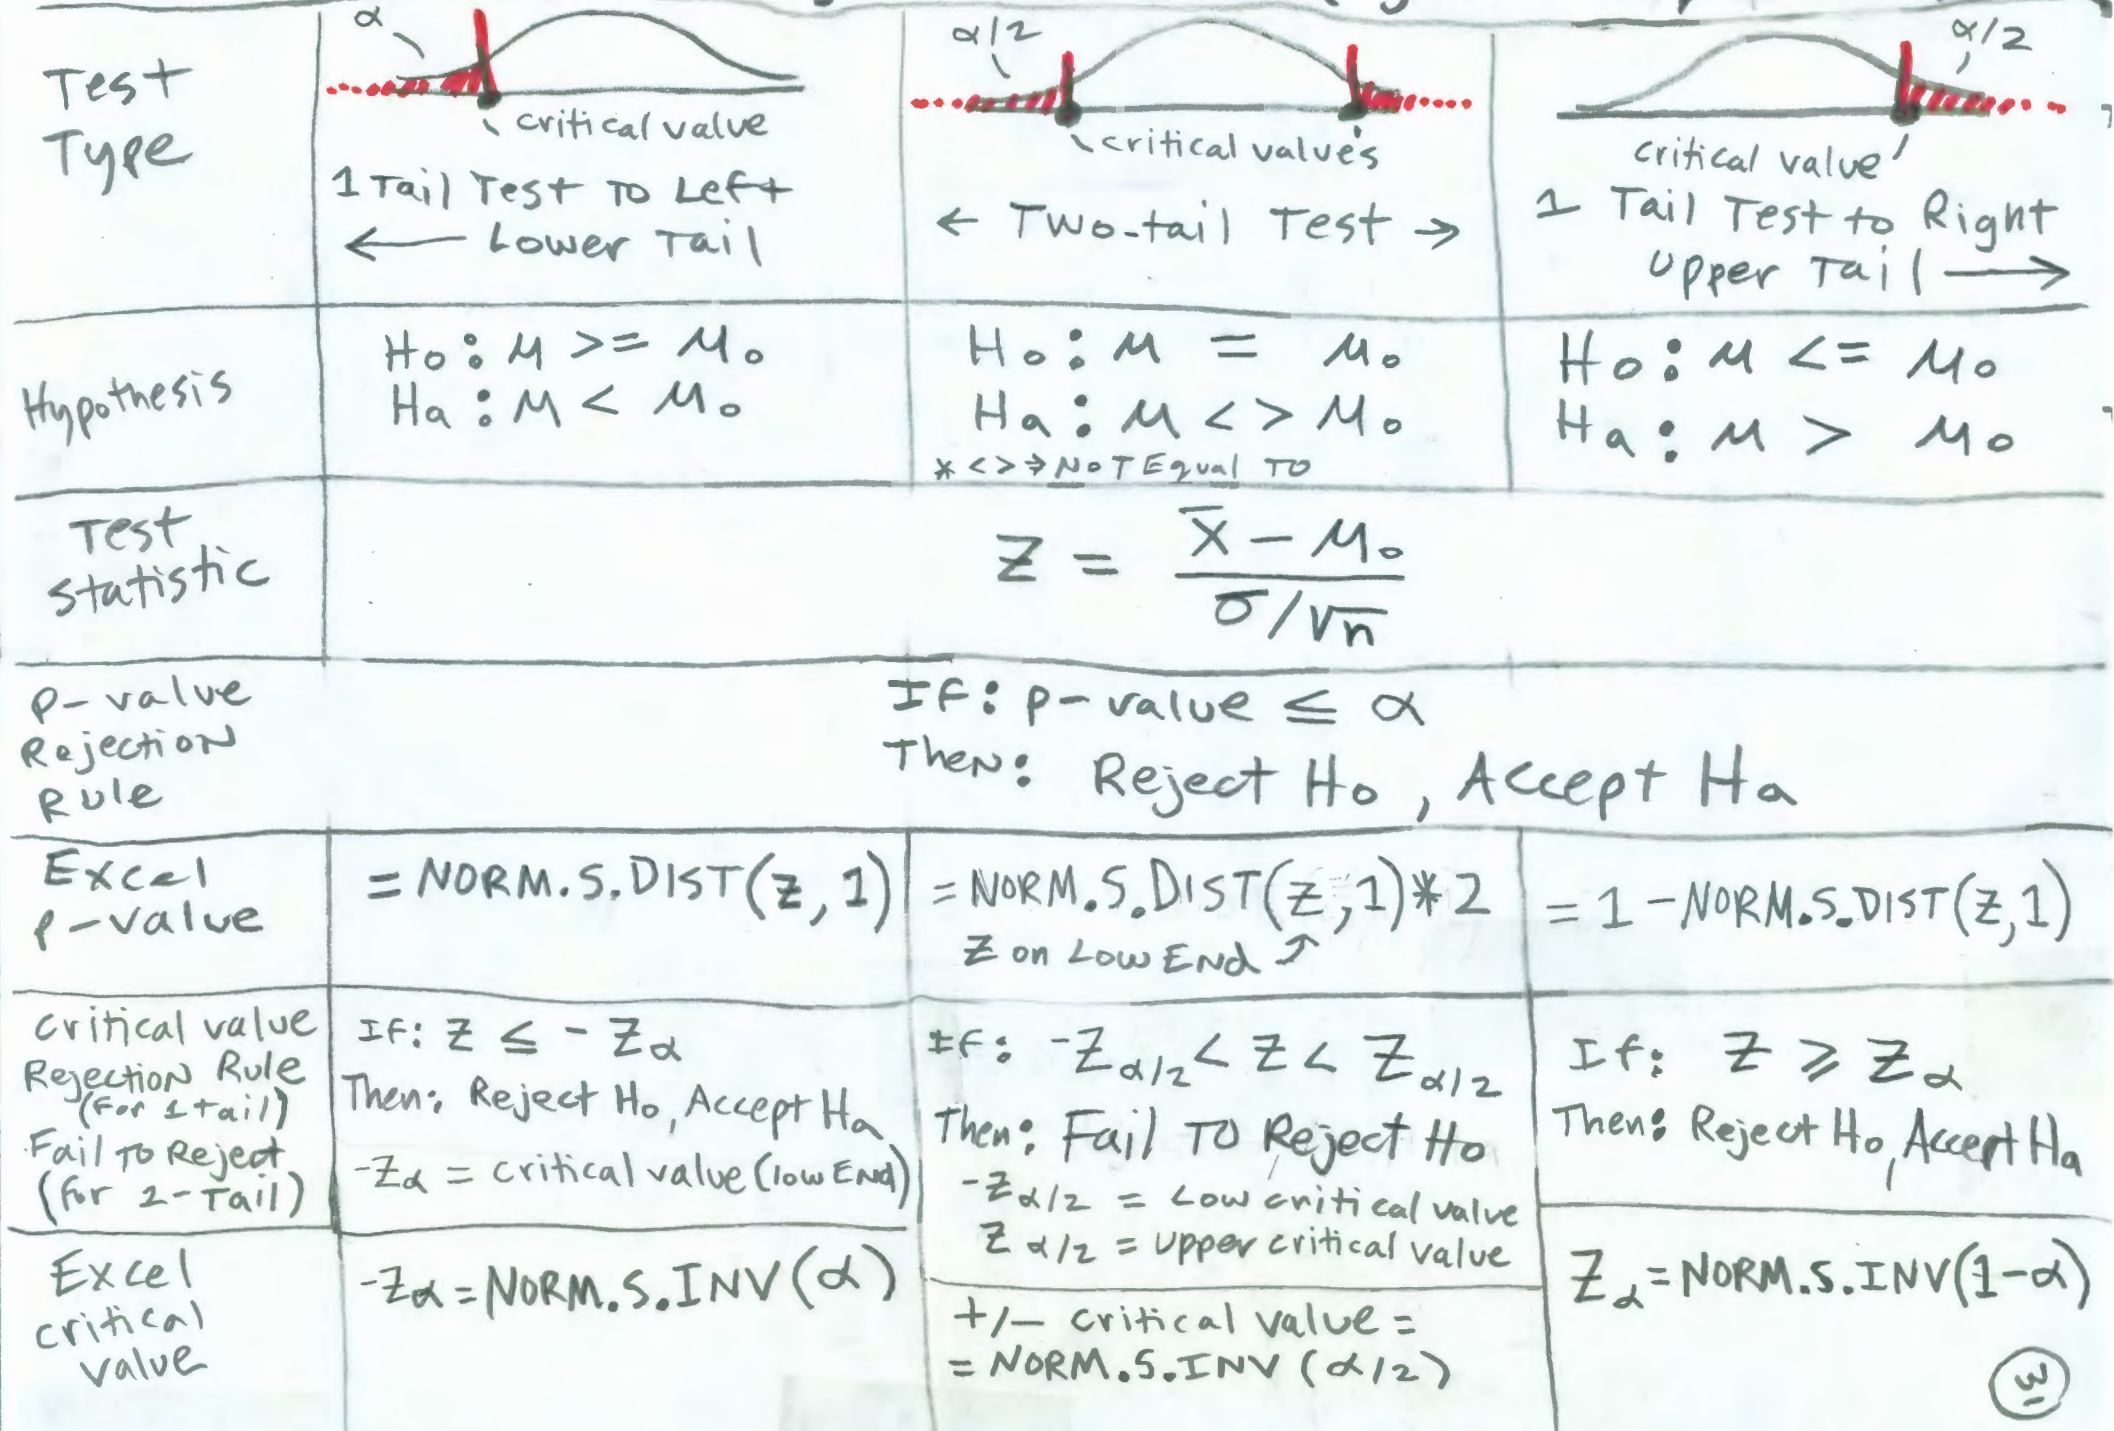 Test
Type
α
critical value
1 Tail Test To Left
← Lower Tail
α/2
critical value's
← Two-tail Test →
α/2
critical value
1 Tail Test to Right
Upper Tail →
Hypothesis
Ho: μ >= μo
Ha: μ < μo
Ho: μ = μo
Ha: μ <> μo
* <> ⇒ Not Equal To
Ho: μ <= μo
Ha: μ > μo
Test
Statistic
Z = (x̄ - μo) / (σ/√n)
p-value
Rejection
Rule
If: p-value ≤ α
Then: Reject Ho, Accept Ha
Excel
p-value
= NORM.S.DIST(z, 1)
= NORM.S.DIST(z, 1)*2
Z on Low End ↑
= 1 - NORM.S.DIST(z,1)
critical value
Rejection Rule
(for 1 tail)
Fail To Reject
(for 2-Tail)
If: Z ≤ -Zα
Then: Reject Ho, Accept Ha
-Zα = critical value (low End)
If: -Zα/2 < Z < Zα/2
Then: Fail To Reject Ho
-Zα/2 = Low critical value
Zα/2 = upper critical value
If: Z ⩾ Zα
Then: Reject Ho, Accept Ha
Excel
critical
value
-Zα = NORM.S.INV(α)
+/- critical value =
= NORM.S.INV(α/2)
Zα = NORM.S.INV(1-α)